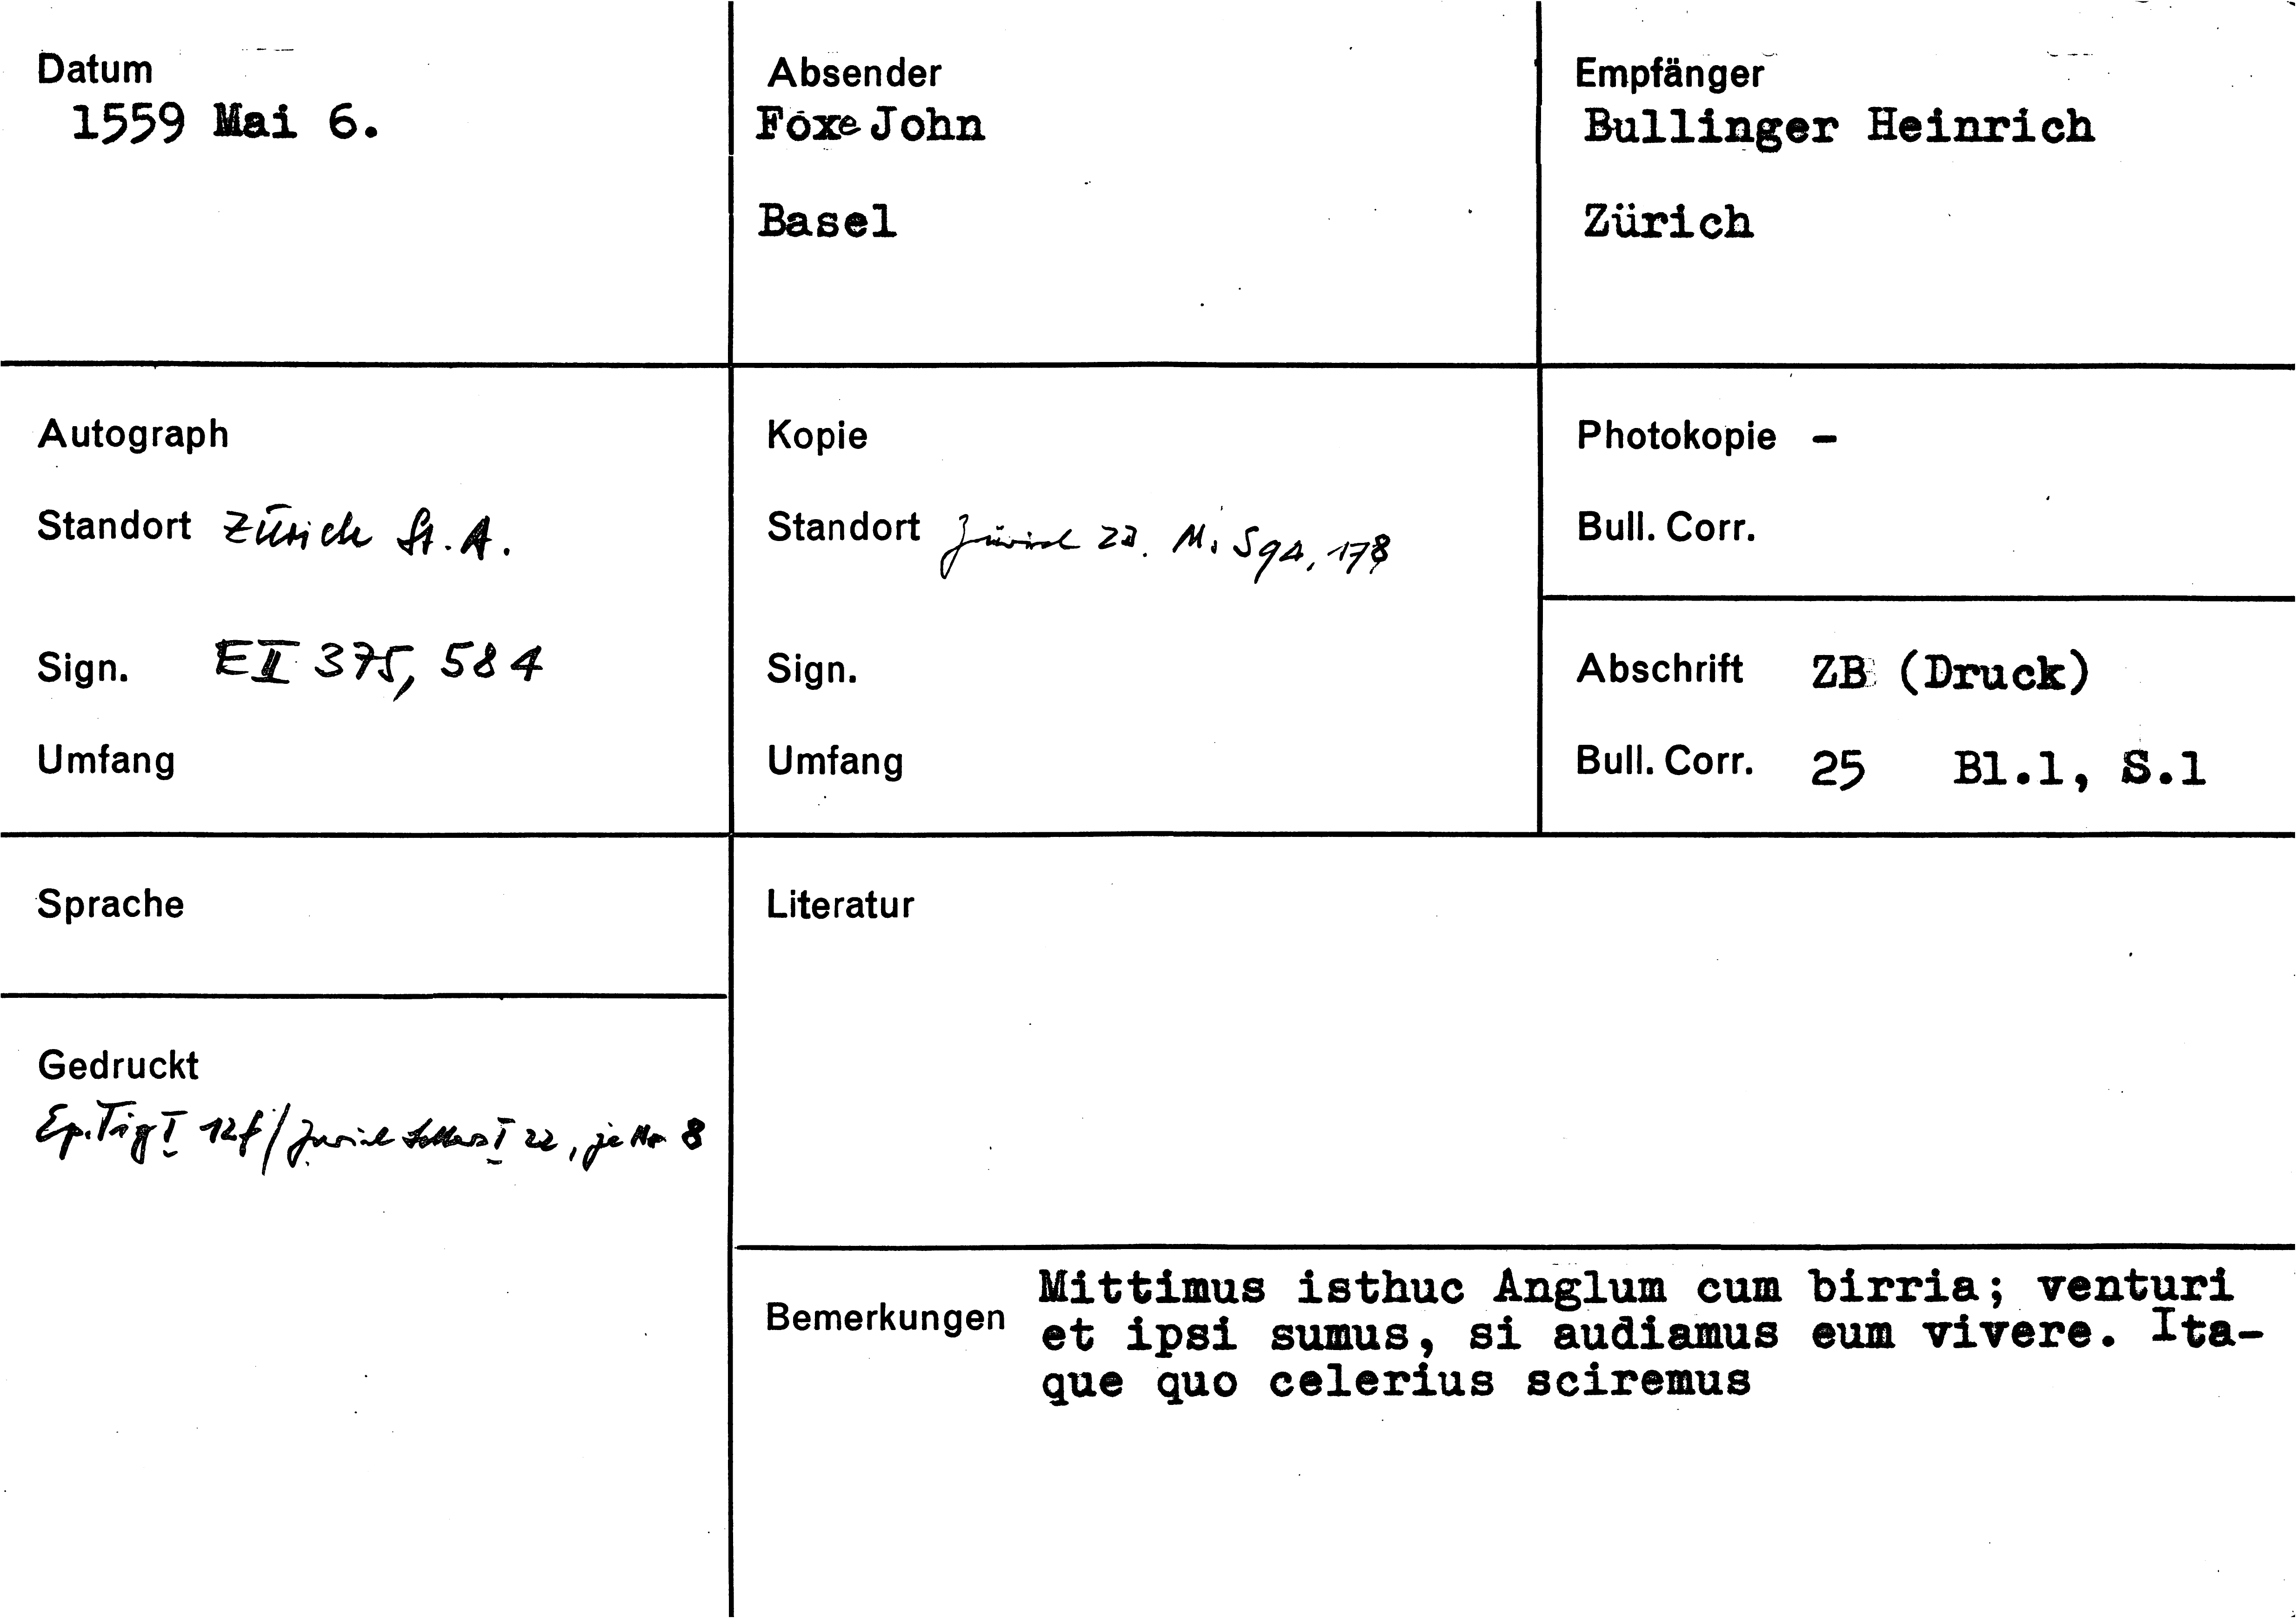 Datum
1559 Mai 6.
Absender
Foxe John
Basel
Empfänger
Bullinger Heinrich
Zürich
Autograph
Standort Zürich St. A.
Sign. E II 375, 584
Umfang
Kopie
Standort Zürich ZB. Ms S 94, 178
Sign.
Umfang
Photokopie –
Bull. Corr.
Abschrift ZB (Druck)
Bull. Corr. 25 Bl.1, S.1
Sprache
Gedruckt
Ep. Tig I 12f / Zurich Letters I 22, je Nr 8
Literatur
Bemerkungen
Mittimus isthuc Anglum cum birria; venturi
et ipsi sumus, si audiamus eum vivere. Ita-
que quo celerius sciremus